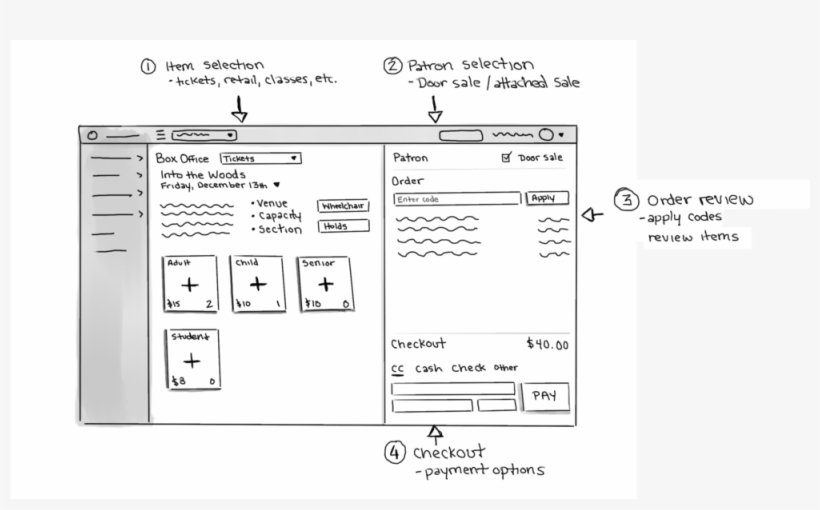 ① Item selection
- tickets, retail, classes, etc.
② Patron selection
- Door sale / attached sale
Box Office Tickets
Into the Woods
Friday, December 13th
• Venue
• Capacity
• Section
Wheelchair
Holds
Adult
+
$15 2
Child
+
$10 1
Senior
+
$10 0
Student
+
$8 0
Patron Door sale
Order
Enter code Apply
Checkout $40.00
CC Cash Check Other
PAY
③ Order review
- apply codes
review items
④ Checkout
- payment options